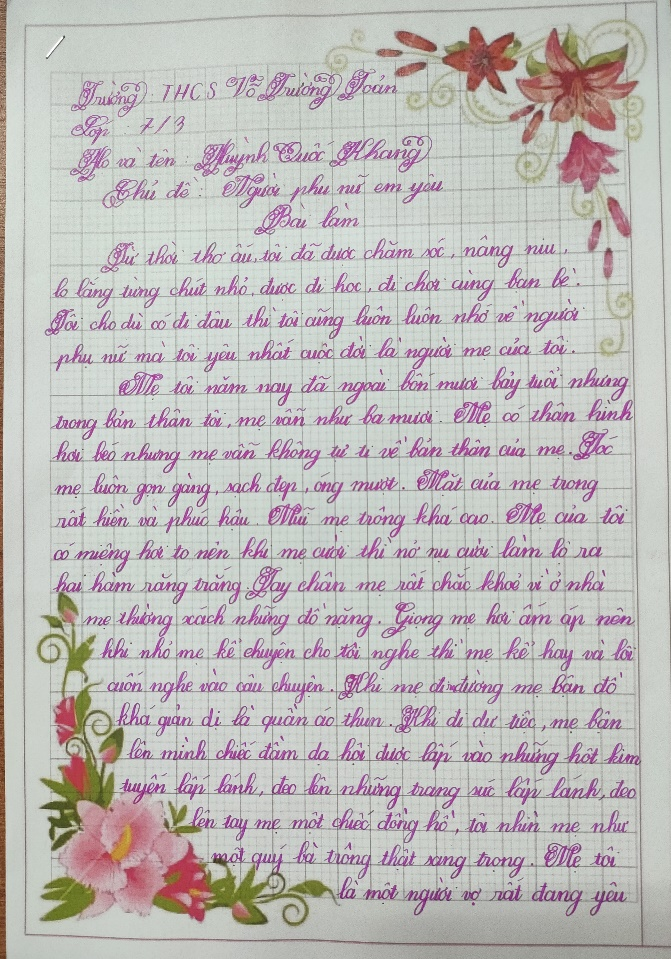 Trường : THCS Võ Trường Toản
Lớp : 7/3
Họ và tên : Huỳnh Quốc Khang
Chủ đề : Người phụ nữ em yêu
Bài làm
Từ thời thơ ấu, tôi đã được chăm sóc, nâng niu,
lo lắng từng chút nhỏ, được đi học, đi chơi cùng bạn bè.
Tôi cho dù có đi đâu thì tôi cũng luôn luôn nhớ về người
phụ nữ mà tôi yêu nhất cuộc đời là người mẹ của tôi.
Mẹ tôi năm nay đã ngoài bốn mươi bảy tuổi nhưng
trong bản thân tôi, mẹ vẫn như ba mươi. Mẹ có thân hình
hơi béo nhưng mẹ vẫn không tự ti về bản thân của mẹ. Tóc
mẹ luôn gọn gàng, sạch đẹp, óng mượt. Mặt của mẹ trông
rất hiền và phúc hậu. Mũi mẹ trông khá cao. Mẹ của tôi
có miệng hơi to nên khi mẹ cười thì nở nụ cười làm lộ ra
hai hàm răng trắng. Tay chân mẹ rất chắc khoẻ vì ở nhà
mẹ thường xách những đồ nặng. Giọng mẹ hơi ấm áp nên
khi nhỏ mẹ kể chuyện cho tôi nghe thì mẹ kể hay và lôi
cuốn nghe vào câu chuyện. Khi mẹ đi đường mẹ bận đồ
khá giản dị là quần áo thun. Khi đi dự tiệc, mẹ bận
lên mình chiếc đầm dạ hội được lấp vào những hột kim
tuyến lấp lánh, đeo lên những trang sức lấp lánh, đeo
lên tay mẹ một chiếc đồng hồ, tôi nhìn mẹ như
một quý bà trông thật sang trọng. Mẹ tôi
là một người vợ rất đáng yêu